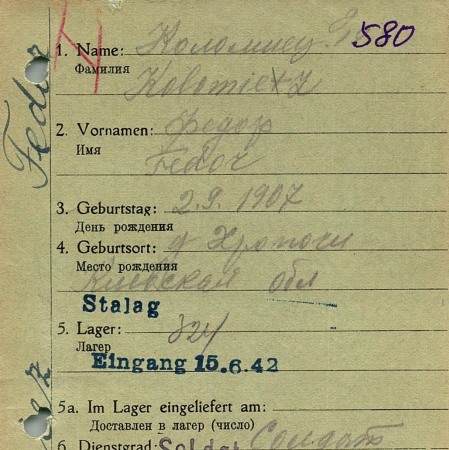 580
1. Name: Коломиец
Фамилия
Kolomietz
2. Vornamen: Федор
Имя
Fedor
Fedor
3. Geburtstag: 2.9.1907
День рождения
4. Geburtsort:
Место рождения
Киевская обл
Stalag
5. Lager: 324
Лагер
Eingang 15.6.42
5a. Im Lager eingeliefert am:
Доставлен в лагер (число)
6. Dienstgrad: Soldat Солдат